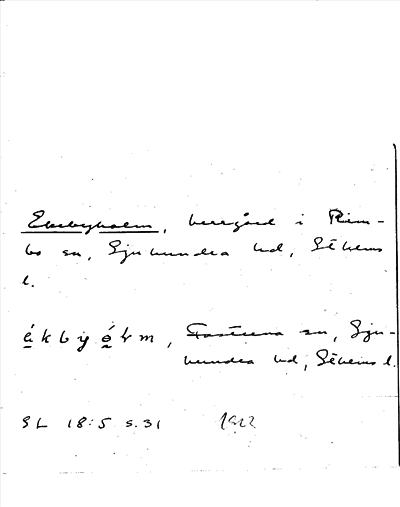 Ekebyholm, herrgård i Rim-
bo sn, Sjuhundra hd, Sthlms
l.
ékbyó̱ɫm, Fasterna sn, Sju-
hundra hd, Sthlms l.
SL 18:5 s. 31 1922